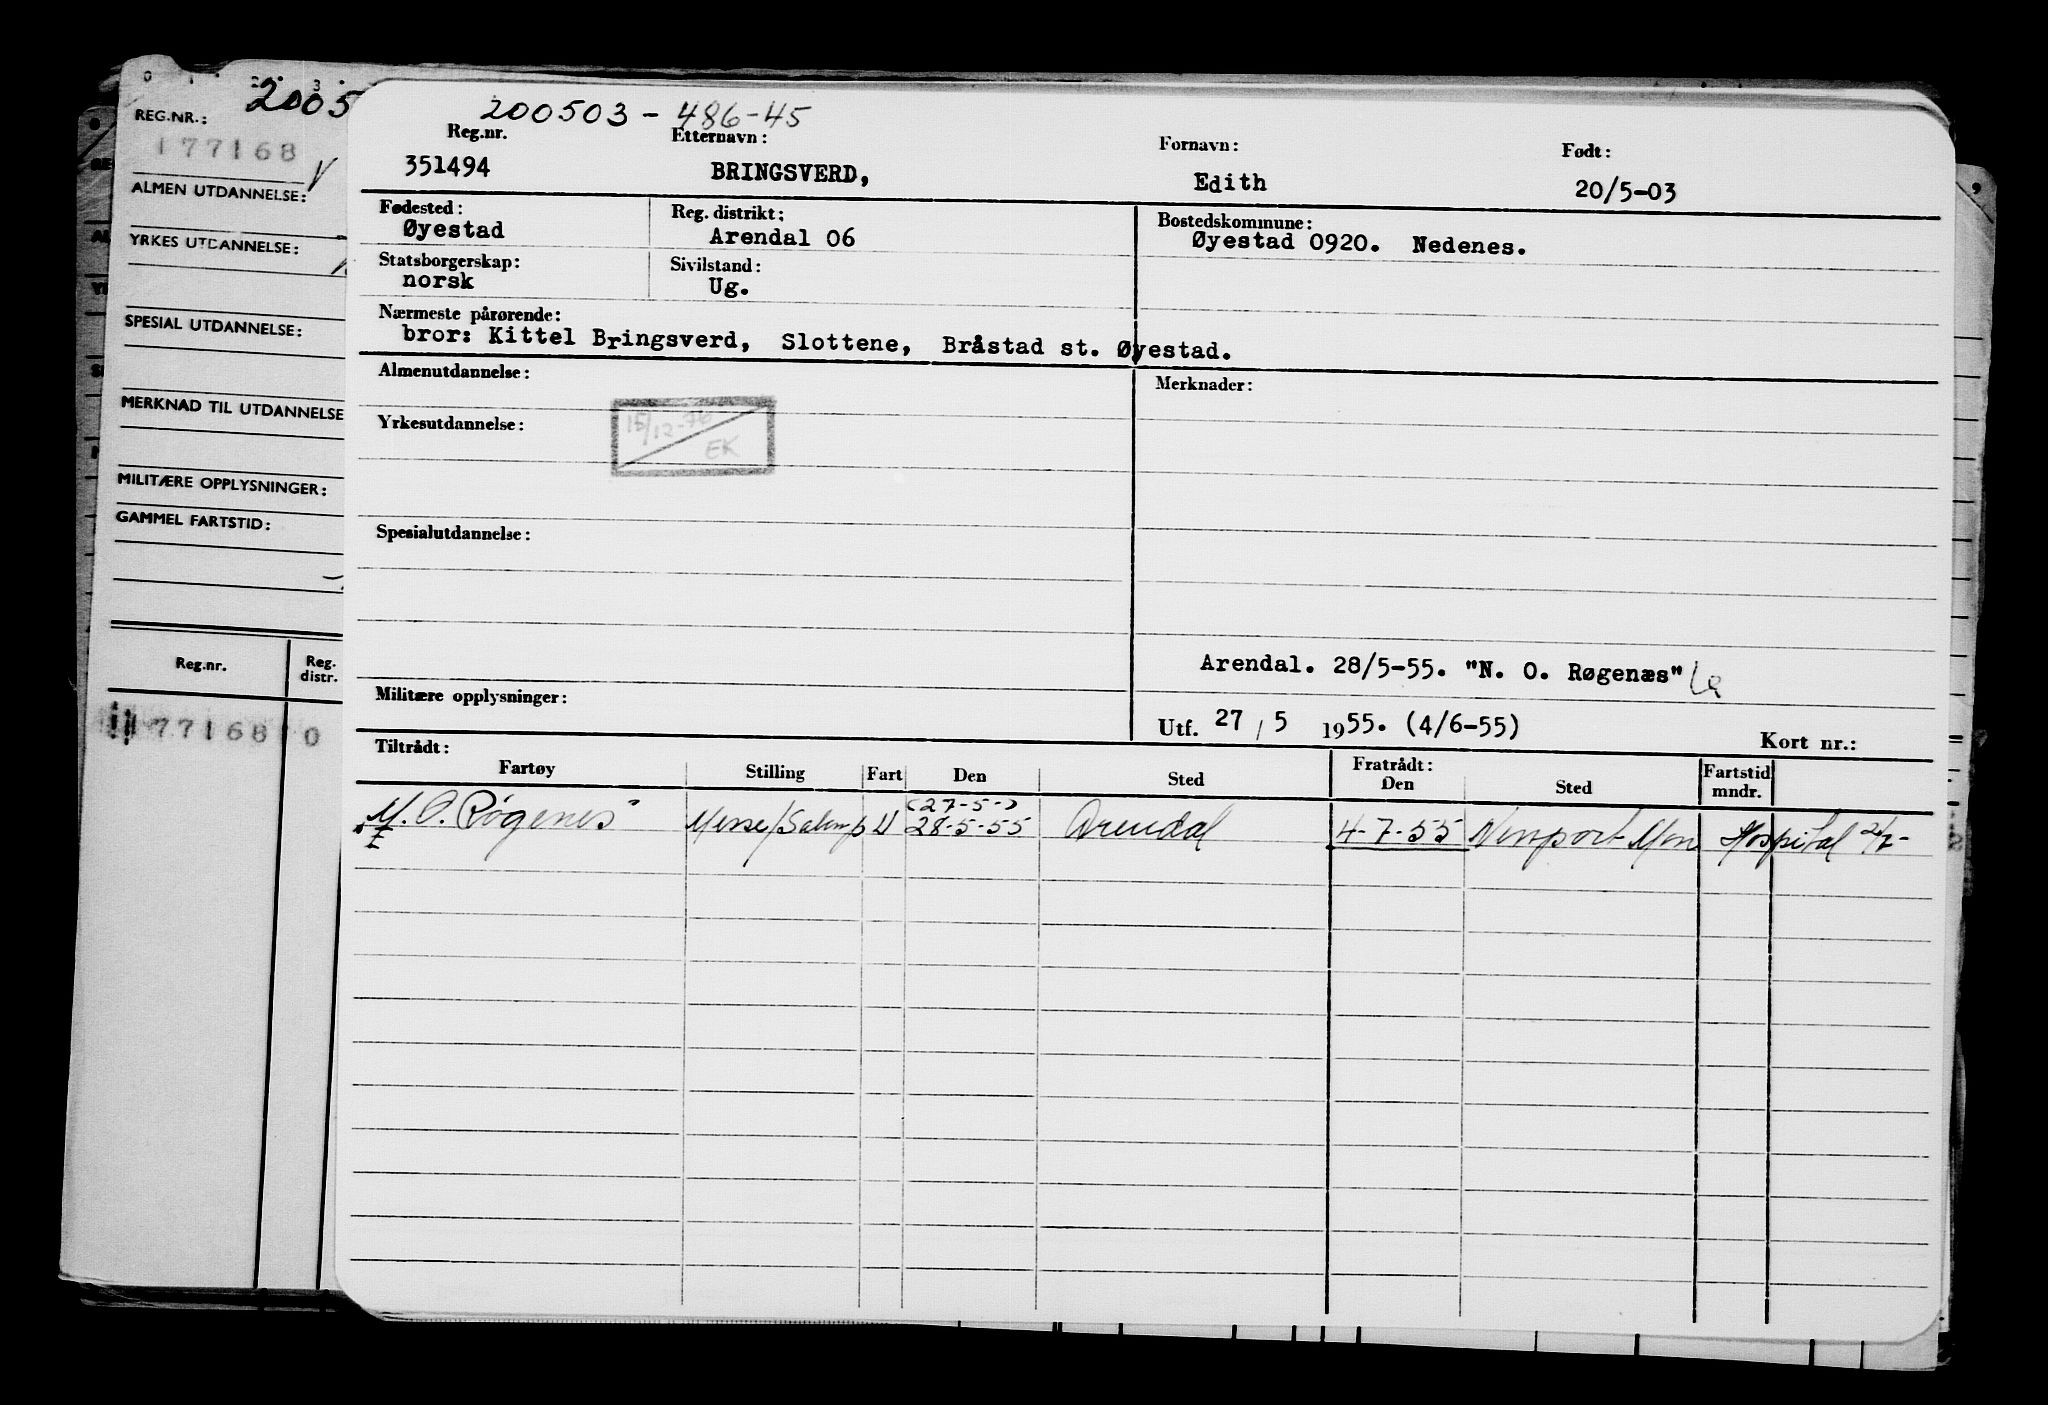 0 1 2 3
2005
REG.NR.:
177168
ALMEN UTDANNELSE:
YRKES UTDANNELSE:
SPESIAL UTDANNELSE:
MERKNAD TIL UTDANNELSE
MILITÆRE OPPLYSNINGER:
GAMMEL FARTSTID:
Reg.nr. Reg. distr.
177168 0
200503-486-45
Reg.nr. Etternavn: Fornavn: Født:
351494 BRINGSVERD, Edith 20/5-03
Fødested: Reg. distrikt: Bostedskommune:
Øyestad Arendal 06 Øyestad 0920. Nedenes.
Statsborgerskap: Sivilstand:
norsk Ug.
Nærmeste pårørende:
bror: Kittel Bringsverd, Slottene, Bråstad st. Øyestad.
Almenutdannelse: Merknader:
Yrkesutdannelse:
15/12-76
EK
Spesialutdannelse:
Arendal. 28/5-55. "N. O. Røgenæs"
Militære opplysninger:
Utf. 27 / 5 1955. (4/6-55) Kort nr.:
Tiltrådt: Fratrådt:
Fartøy Stilling Fart Den Sted Den Sted Fartstid mndr.
(27-5-)
M. O. Røgenes" Messe/Salonp U 28-5-55 Arendal 4-7-55 Newport Mon Hospital